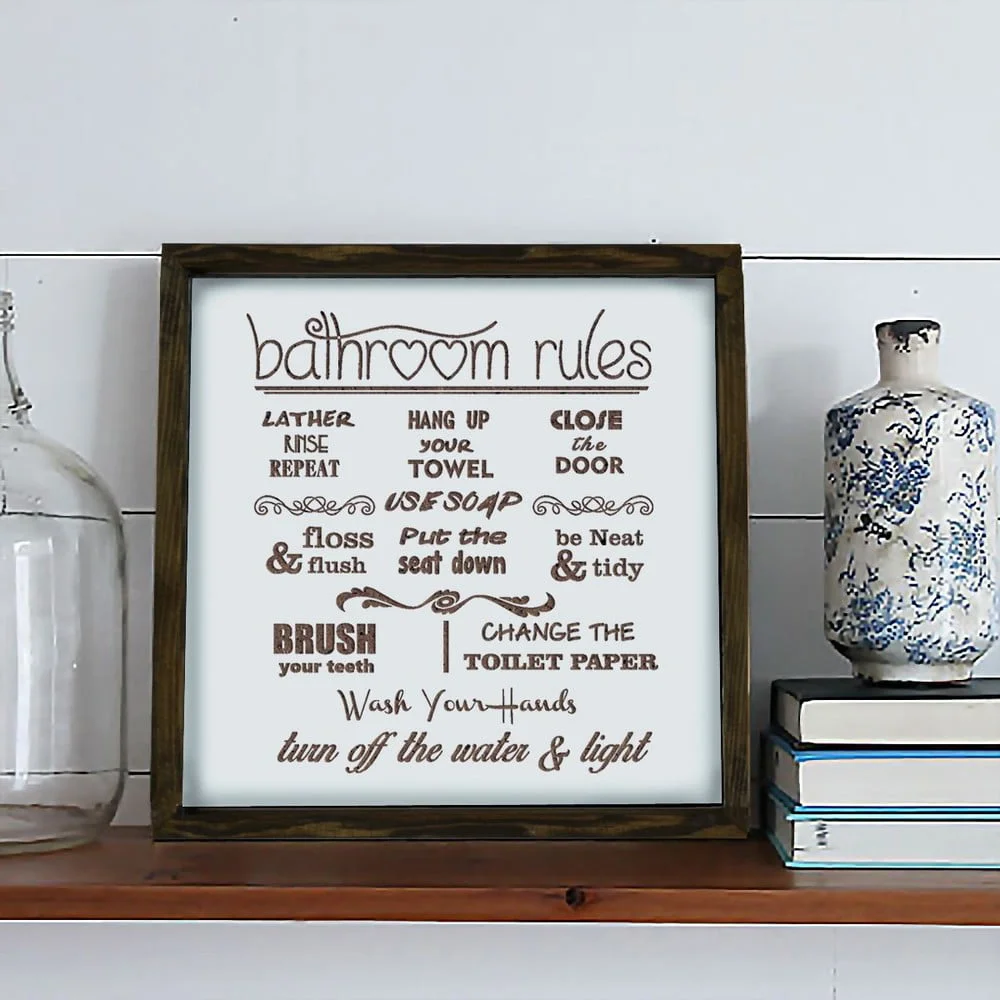 bathroom rules
LATHER
RINSE
REPEAT
HANG UP
YOUR
TOWEL
CLOSE
the
DOOR
USE SOAP
floss
& flush
Put the
seat down
be Neat
& tidy
BRUSH
your teeth
CHANGE THE
TOILET PAPER
Wash Your Hands
turn off the water & light